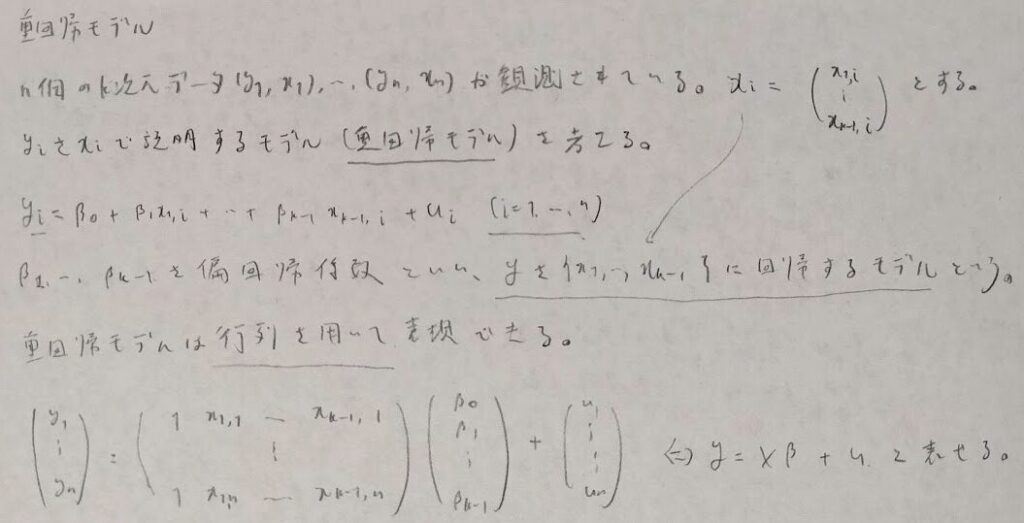 重回帰モデル
n個のk次元データ(y₁, x₁), …, (yₙ, xₙ)が観測されている。 xᵢ = (x₁,ᵢ ⋮ xₖ₋₁,ᵢ) とする。
yᵢをxᵢで説明するモデル(重回帰モデル)を考える。
yᵢ = β₀ + β₁x₁,ᵢ + … + βₖ₋₁ xₖ₋₁,ᵢ + uᵢ (i=1, …, n)
β₁, …, βₖ₋₁を偏回帰係数といい、yを{x₁, …, xₖ₋₁}に回帰するモデルという。
重回帰モデルは行列を用いて表現できる。
(y₁ ⋮ yₙ) = (1 x₁,₁ … xₖ₋₁,₁ ⋮ 1 x₁,ₙ … xₖ₋₁,ₙ) (β₀ β₁ ⋮ βₖ₋₁) + (u₁ ⋮ uₙ) ⇔ y = Xβ + u. と表せる。